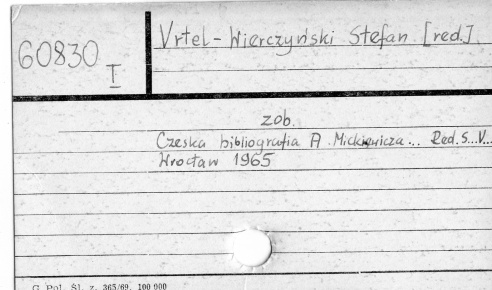 60830 I
Vrtel-Wierczyński Stefan [red.]
zob.
Czeska bibliografia A. Mickiewicza... Red. S. V...
Wrocław 1965
G. Pol. Śl. z. 365/69. 100 000